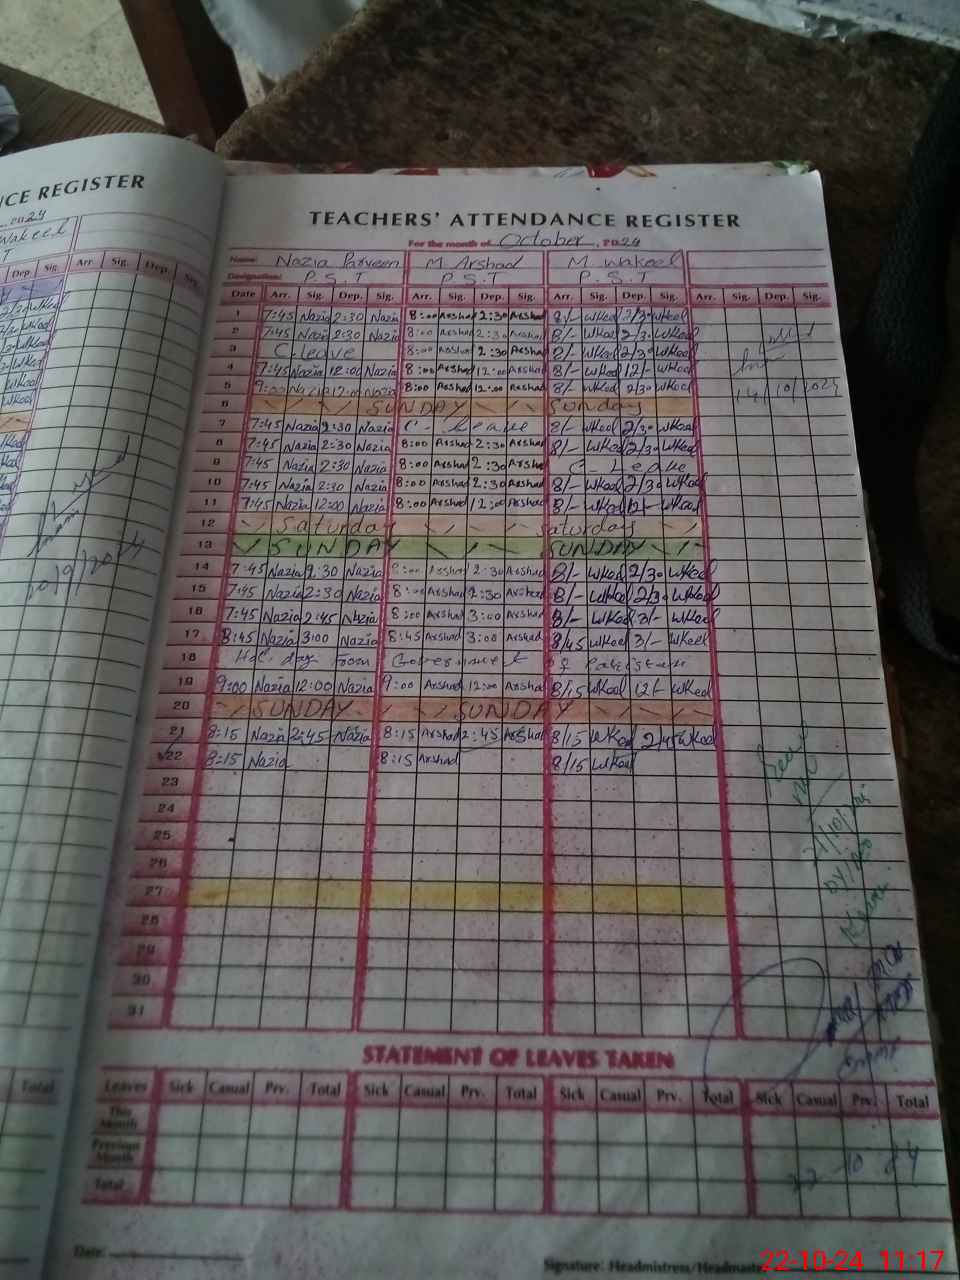 CE REGISTER
TEACHERS' ATTENDANCE REGISTER
For the month of October, 2024
Name: Nazia Parveen M Arshad M. Wakeel
Designation: P.S.T P.S.T P.S.T
Date Arr. Sig. Dep. Sig. Arr. Sig. Dep. Sig. Arr. Sig. Dep. Sig. Arr. Sig. Dep. Sig.
1 7:45 Nazia 2:30 Nazia 8:00 Arshad 2:30 Arshad 8/- WKeel 2/30 WKeel
2 7:45 Nazia 2:30 Nazia 8:00 Arshad 2:30 Arshad 8/- WKeel 2/30 WKeel
3 C-leave 8:00 Arshad 2:30 Arshad 8/- WKeel 2/30 WKeel
4 7:45 Nazia 12:00 Nazia 8:00 Arshad 12:00 Arshad 8/- WKeel 12/- WKeel
5 9:00 Nazia 12:00 Nazia 8:00 Arshad 12:00 Arshad 8/- WKeel 2/30 WKeel 14/10/2024
6 SUNDAY Sunday
7 7:45 Nazia 2:30 Nazia C- Leave 8/- WKeel 2/30 WKeel
8 7:45 Nazia 2:30 Nazia 8:00 Arshad 2:30 Arshad 8/- WKeel 2/30 WKeel
9 7:45 Nazia 2:30 Nazia 8:00 Arshad 2:30 Arshad C- Leave
10 7:45 Nazia 2:30 Nazia 8:00 Arshad 2:30 Arshad 8/- WKeel 2/30 WKeel
11 7:45 Nazia 12:00 Nazia 8:00 Arshad 12:00 Arshad 8/- WKeel 12/- WKeel
12 Saturday Saturday
13 SUNDAY SUNDAY
14 7:45 Nazia 2:30 Nazia 8:00 Arshad 2:30 Arshad 8/- WKeel 2/30 WKeel
15 7:45 Nazia 2:30 Nazia 8:00 Arshad 2:30 Arshad 8/- WKeel 2/30 WKeel
16 7:45 Nazia 2:45 Nazia 8:00 Arshad 3:00 Arshad 8/- WKeel 3/- WKeel
17 8:45 Nazia 3:00 Nazia 8:45 Arshad 3:00 Arshad 8/45 WKeel 3/- WKeel
18 Holiday From Government of Pakistan
19 9:00 Nazia 12:00 Nazia 9:00 Arshad 12:00 Arshad 8/15 WKeel 12/- WKeel
20 SUNDAY SUNDAY
21 8:15 Nazia 2:45 Nazia 8:15 Arshad 2:45 Arshad 8/15 WKeel 2/45 WKeel
22 8:15 Nazia 8:15 Arshad 8/15 WKeel
23
24
25
26
27
28
29
30
31
STATEMENT OF LEAVES TAKEN
Leaves Sick Casual Prv. Total Sick Casual Prv. Total Sick Casual Prv. Total Sick Casual Prv. Total
This Month
Previous Month
Total
22-10-24
Date:
Signature: Headmistress/Headmaster
22-10-24 11:17